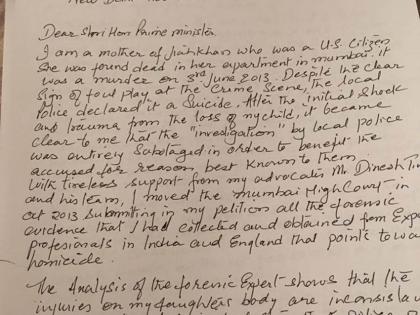 New Delhi
Dear Shri Hon Prime minister.
I am a mother of Jiah Khan who was a U.S. Citizen
She was found dead in her apartment in mumbai. it
was a murder on 3rd June 2013. Despite the clear
sign of foul play at the crime scene, the local
Police declared it a Suicide. After the initial shock
and trauma from the loss of my child, it became
clear to me that the "investigation" by local police
was entirely Sabotaged in order to benefit the
accused for reason best known to them.
With timeless support from my advocates Mr. Dinesh
and his team, I moved the mumbai High Court in
oct 2013 Submitting in my petition all the forensic
evidence that I had collected and obtained from Exp
professionals in India and England that points towa
homicide.
The Analysis of the forensic Expert shows that the
injuries on my daughters body are inconsista